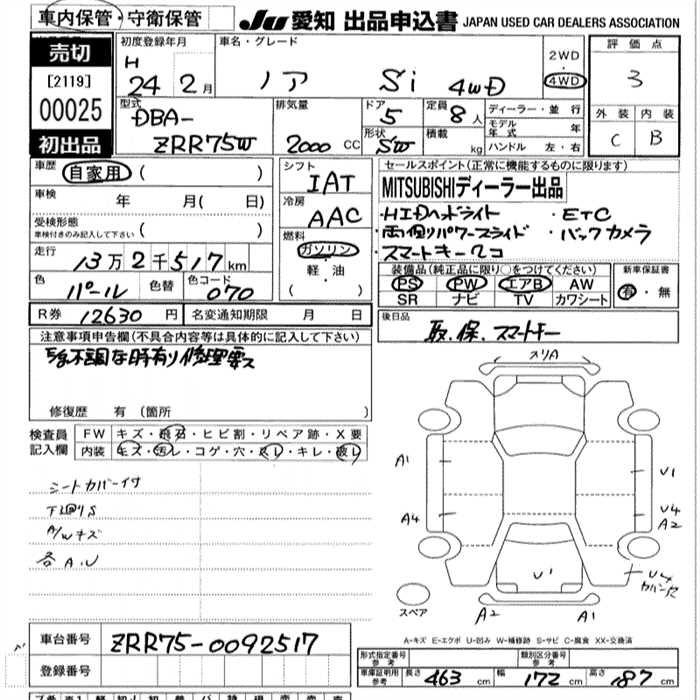 車内保管・守衛保管 JU 愛知 出品申込書 JAPAN USED CAR DEALERS ASSOCIATION
売切
[2119]
00025
初出品
初度登録年月 車名・グレード
H 24年 2月 ノア Si 4WD
2WD
・
4WD
評価点
3
外装 内装
C B
型式 排気量 ドア 定員 ディーラー・並行
DBA-
ZRR75W 2000 CC 5 8人
形状 積載 モデル年式 年
SW kg ハンドル 左・右
車歴 自家用 ( )
車検 年 月( 日)
受検形態
車検付きのみ記入して下さい ( )
走行
13万2千517km
色 パール 色替 色コード 070
シフト
IAT
冷房
AAC
燃料
ガソリン
軽・油
( )
セールスポイント(正常に機能するものに限ります)
MITSUBISHIディーラー出品
・HIDヘッドライト ・ETC
・両側パワースライド ・バックカメラ
・スマートキー2コ
装備品(純正品に限り○をつけてください) 新車保証書
PS PW エアB AW 有・無
SR ナビ TV カワシート
R券 12630円 名変通知期限 月 日
後日品
取、保、スマートキー
注意事項申告欄(不具合内容等は具体的に記入して下さい)
不調な時有り 修理要ス
修復歴 有 (箇所 )
検査員 FW キズ・飛石・ヒビ割・リペア跡・X要
記入欄 内装 キズ・汚レ・コゲ・穴・スレ・キレ・破レ
シートカバー付
下廻りS
A/Wキズ
各A.U
スリA
A1
U1
A4
U4
A2
U1
U4
カバー欠
スペア
A2
A1
A-キズ E-エクボ U-凹み W-補修跡 S-サビ C-腐食 XX-交換済
車台番号 ZRR75-0092517
登録番号
形式指定番号 参考 類別区分番号 参考
車庫証明用 参考 長さ 463 cm 幅 172 cm 高さ 187 cm